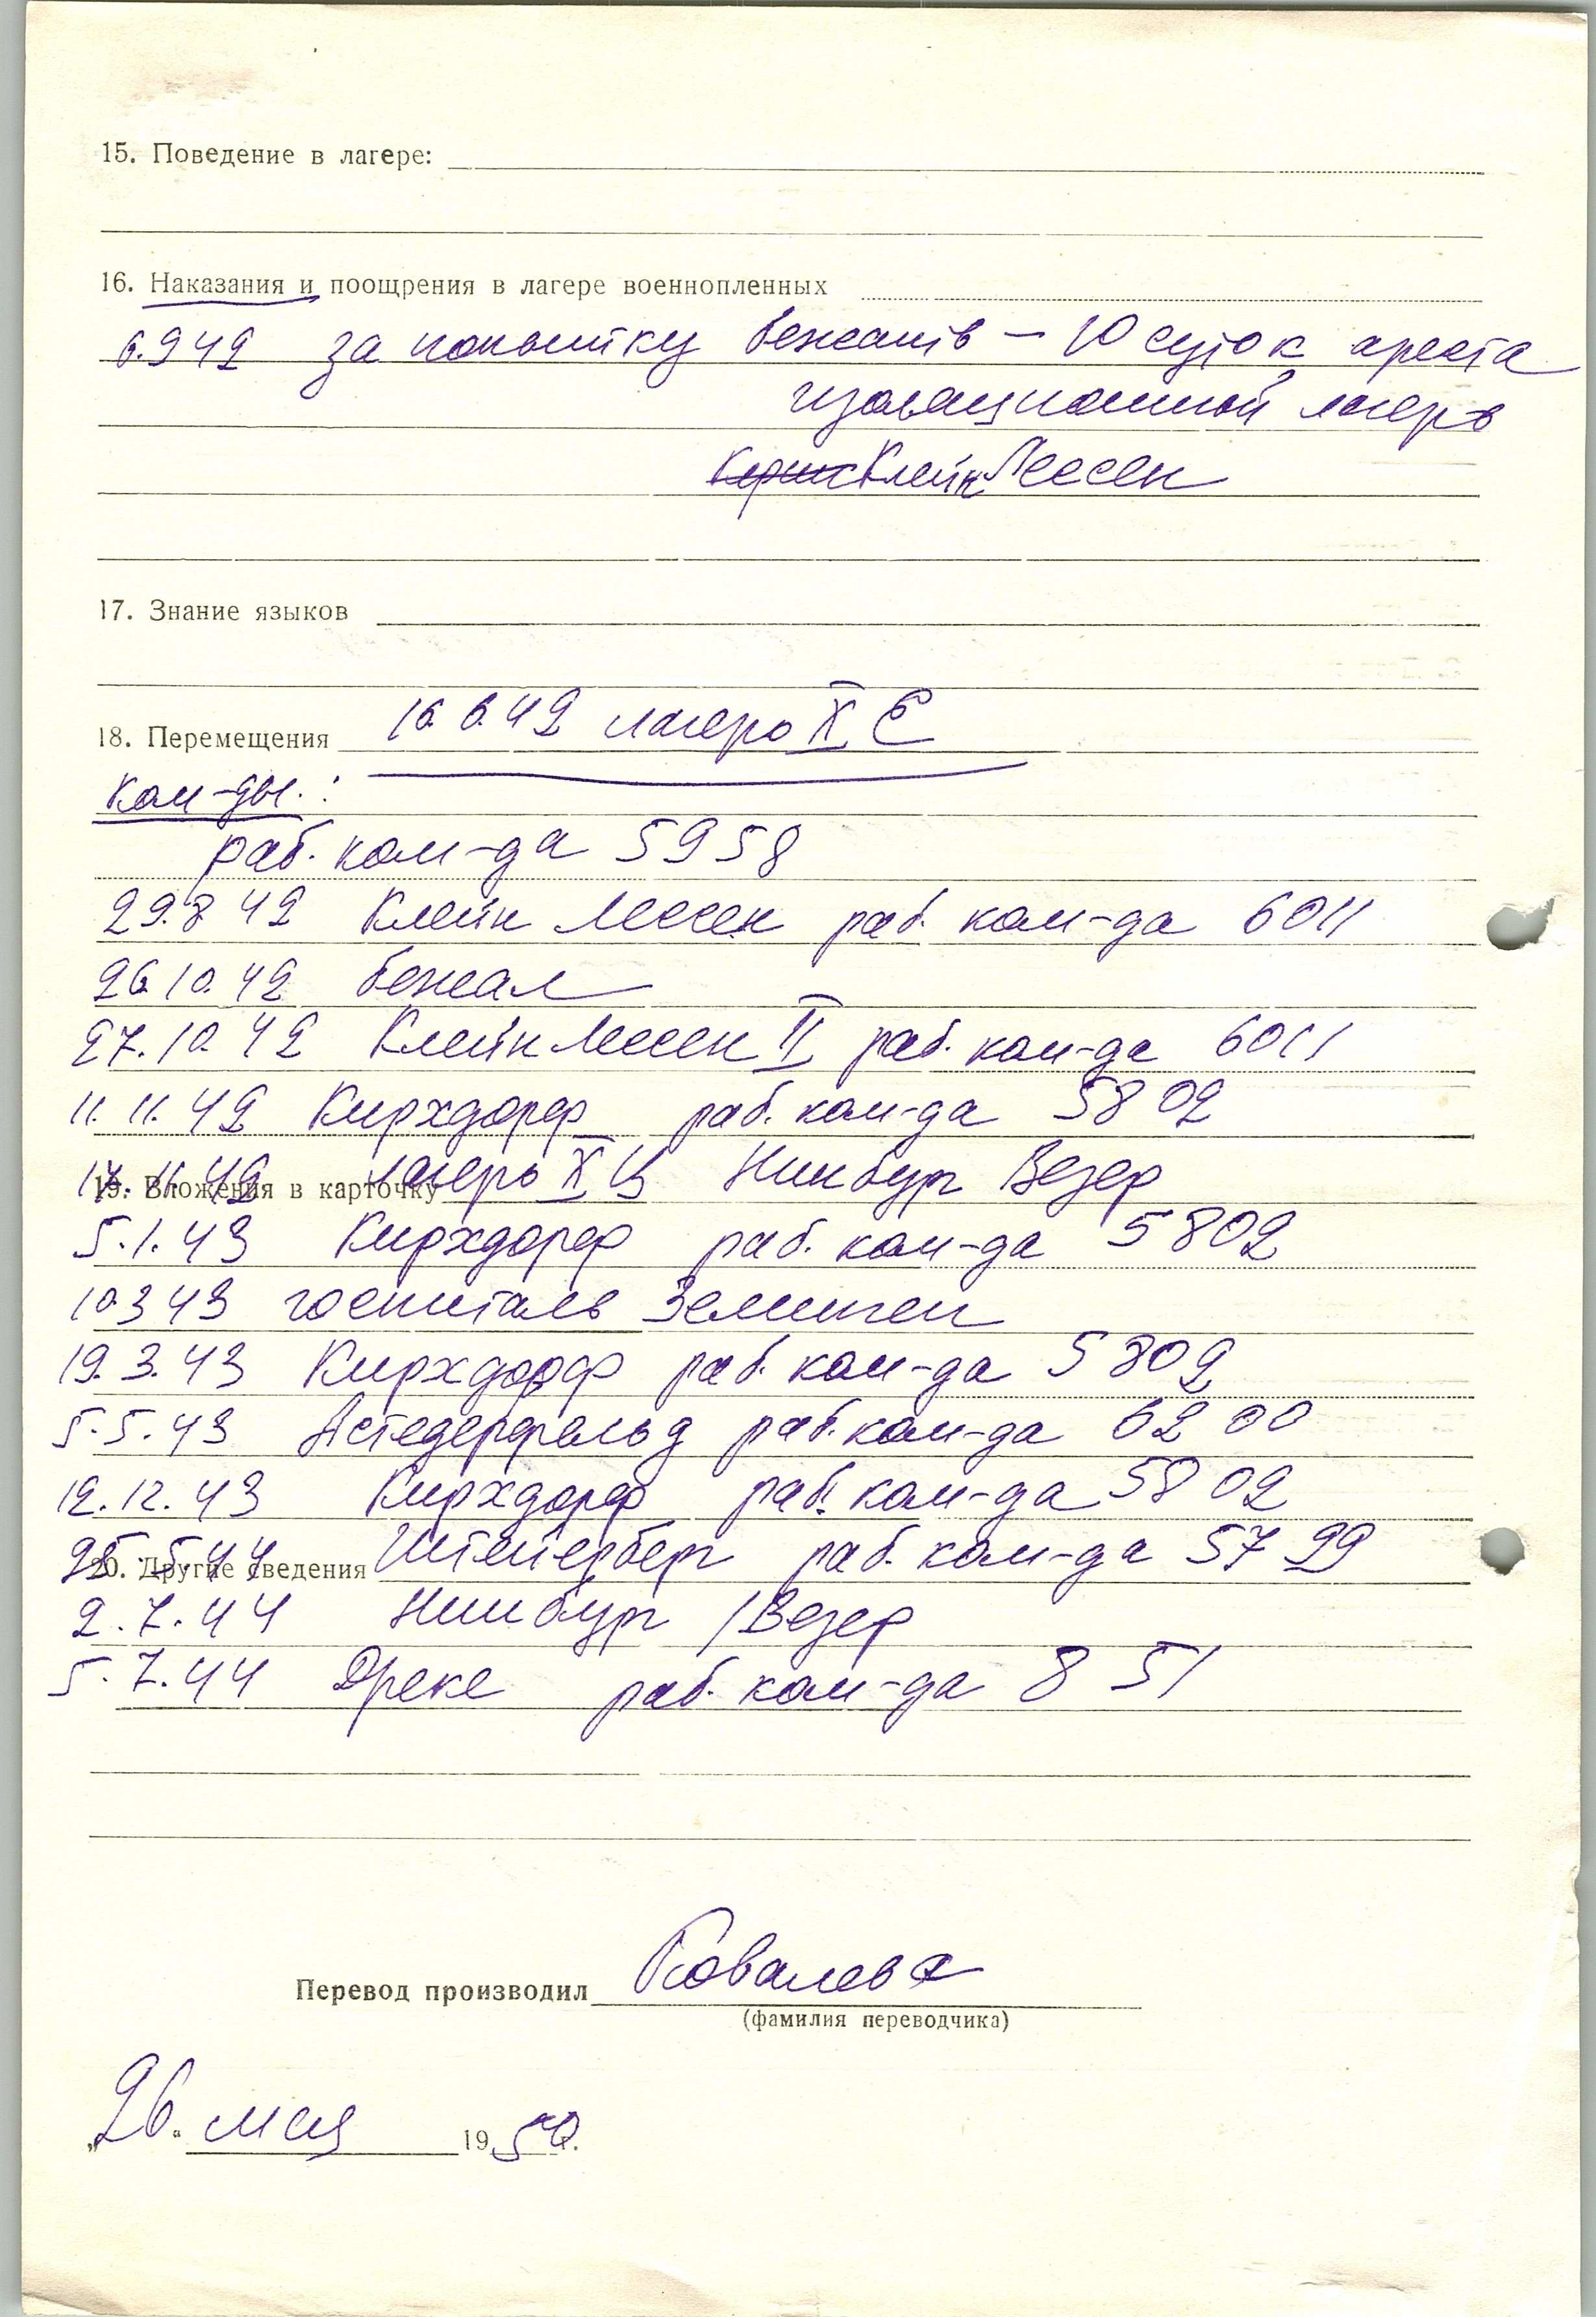 15. Поведение в лагере:
16. Наказания и поощрения в лагере военнопленных
6.9 42 за попытку бежать – 10 суток ареста
изоляционный лагерь
Клейн Лессен
17. Знание языков
18. Перемещения 16.6.42 лагерь X
ком-ды.:
раб. ком-да 5958
29.8 42 Клейн Лессен раб. ком-да 6011
26.10.42 бежал
27.10.42 Клейн Лессен II раб. ком-да 6011
11.11.42 Кирхдорф раб. ком-да 5802
19. Вложения в карточку лагерь X Ц Нинбург Везер
5.1.43 Кирхдорф раб. ком-да 5802
10.3 43 госпиталь
19.3.43 Кирхдорф раб. ком-да 5802
5.5.43 раб. ком-да 6200
12.12.43 Кирхдорф раб. ком-да 5802
20. Другие сведения 25.5.44 Штейерберг раб. ком-да 5799
2.7.44 Нинбург /Везер
5.7.44 Дреке раб. ком-да 851
Перевод производил Ковалева
(фамилия переводчика)
„26." мая 1950 г.